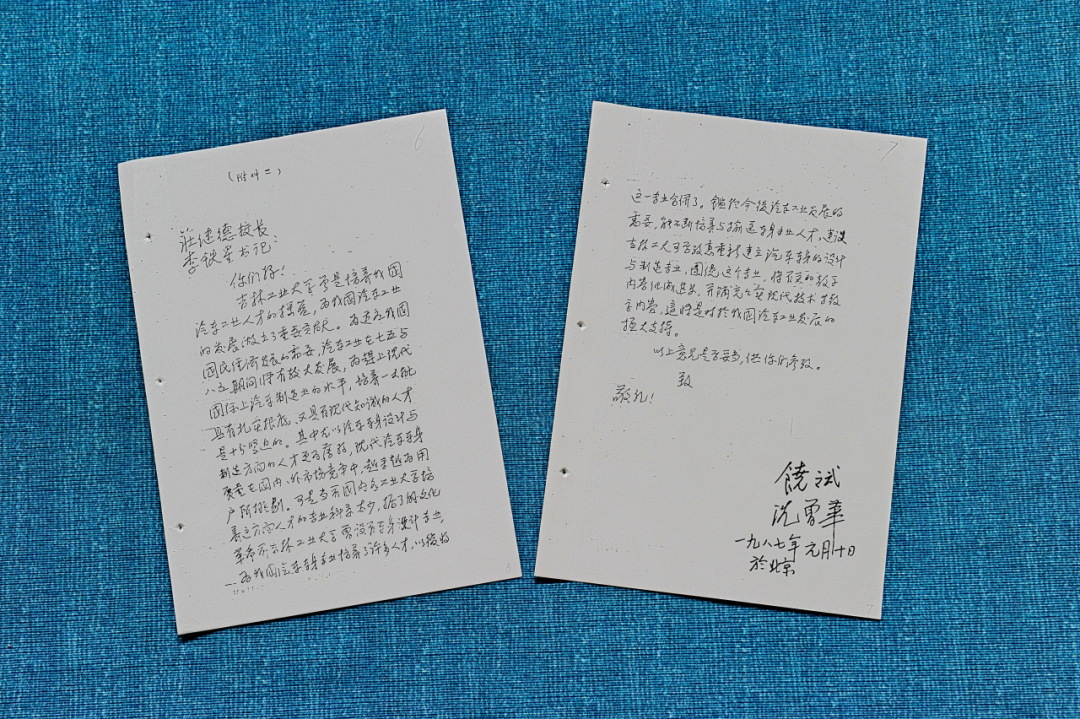 6
（附件二）
莊继德校长、
李铁军书记、
你们好！
吉林工业大学是培养我國
汽车工业人才的摇篮，为我國汽车工业
的发展做出了重要贡献。为适应我國
國民经济发展的需要，汽车工业在七五与
八五期间将有较大发展，为赶上现代
國际上汽车制造业的水平，培养一大批
具有扎实根底、又具有现代知识的人才
是十分迫的。其中尤以汽车车身设计与
制造方向的人才更为薄弱，现代汽车车身
质量在國内、外市场竞争中，越来越为用
户所挑剔。可是当前國内各工业大学培
养这方面人才的专业科系太少，据了解文化
革命前吉林工业大学曾设有车身设计专业，
为我國汽车车身专业培养了许多人才，以後好
7
这一专业仃了。鑑於今後汽车工业发展的
需要，能不断培养与输送车身专业人才，建议
吉林工大可否考虑重新建立汽车车身的设计
与制造专业，围绕这个专业，将有关的教学
内容作改进，并补充以现代技术教
学内容，這将是对於我國汽车工业发展的
极大支持。
以上意见是否妥当，供你们参考。
致
敬礼！
饶斌
沈曾華
一九八七年元月十日
於北京
7